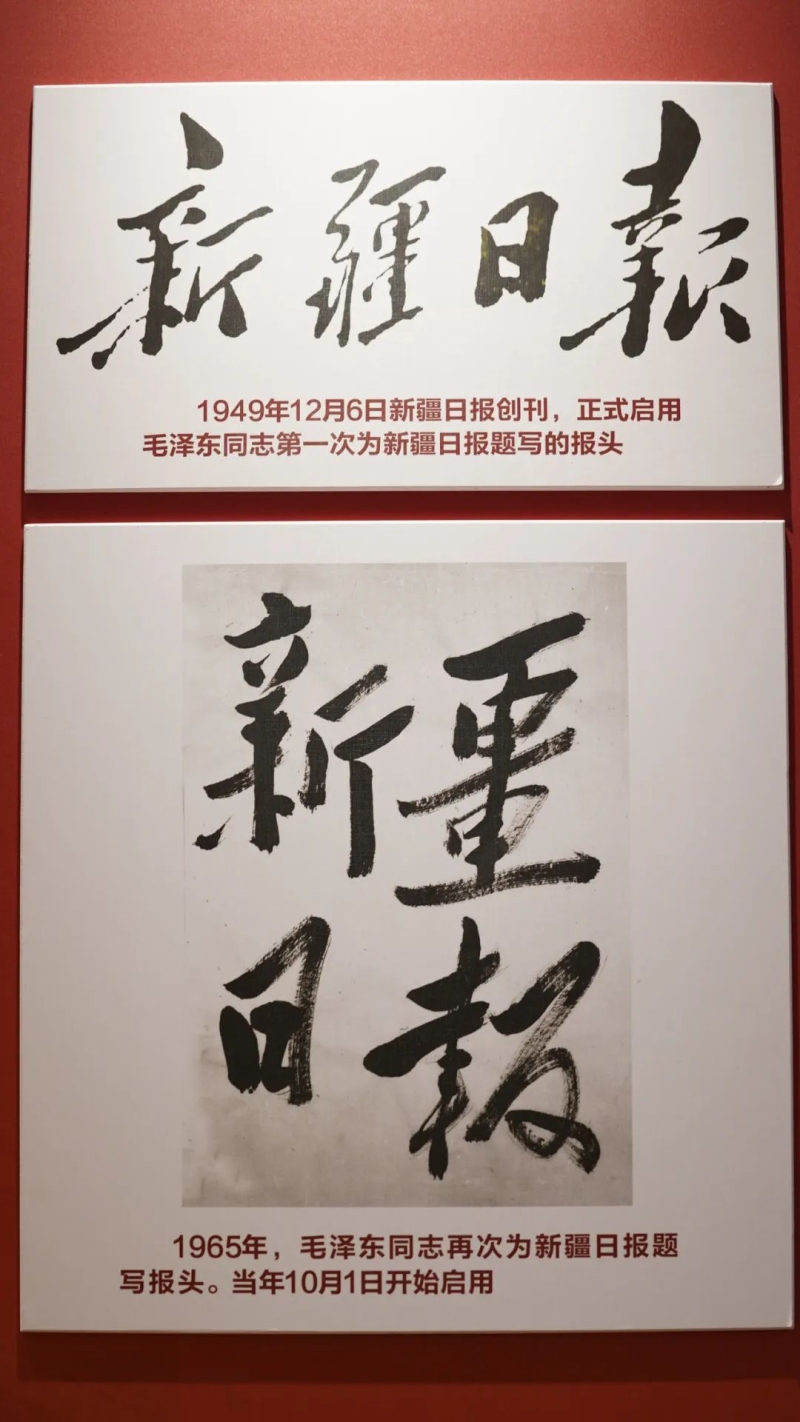 新疆日報
1949年12月6日新疆日报创刊，正式启用
毛泽东同志第一次为新疆日报题写的报头
新畺
日報
1965年，毛泽东同志再次为新疆日报题
写报头。当年10月1日开始启用